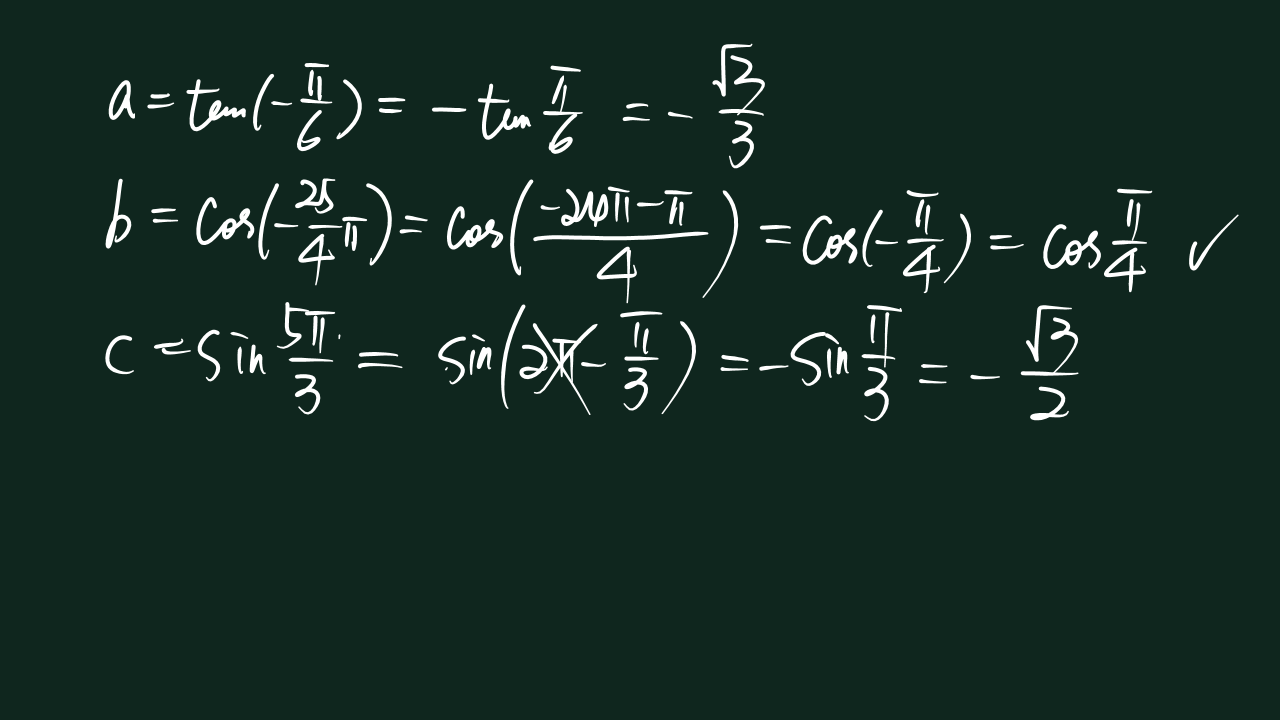 a = tan(-π/6) = -tan π/6 = -√3/3
b = cos(-25/4 π) = cos((-24π-π)/4) = cos(-π/4) = cos π/4 ✓
c = sin 5π/3 = sin(2π - π/3) = -sin π/3 = -√3/2